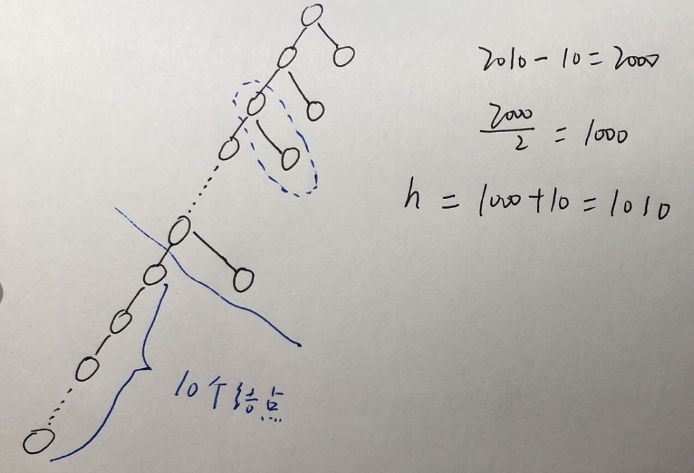 2010 - 10 = 2000
2000/2 = 1000
h = 1000 + 10 = 1010
10个结点